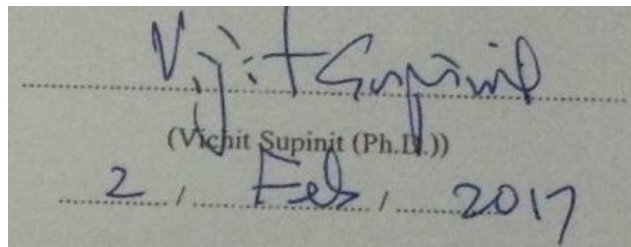 Vijit Supinit
(Vichit Supinit (Ph.D.))
2 / Feb / 2017